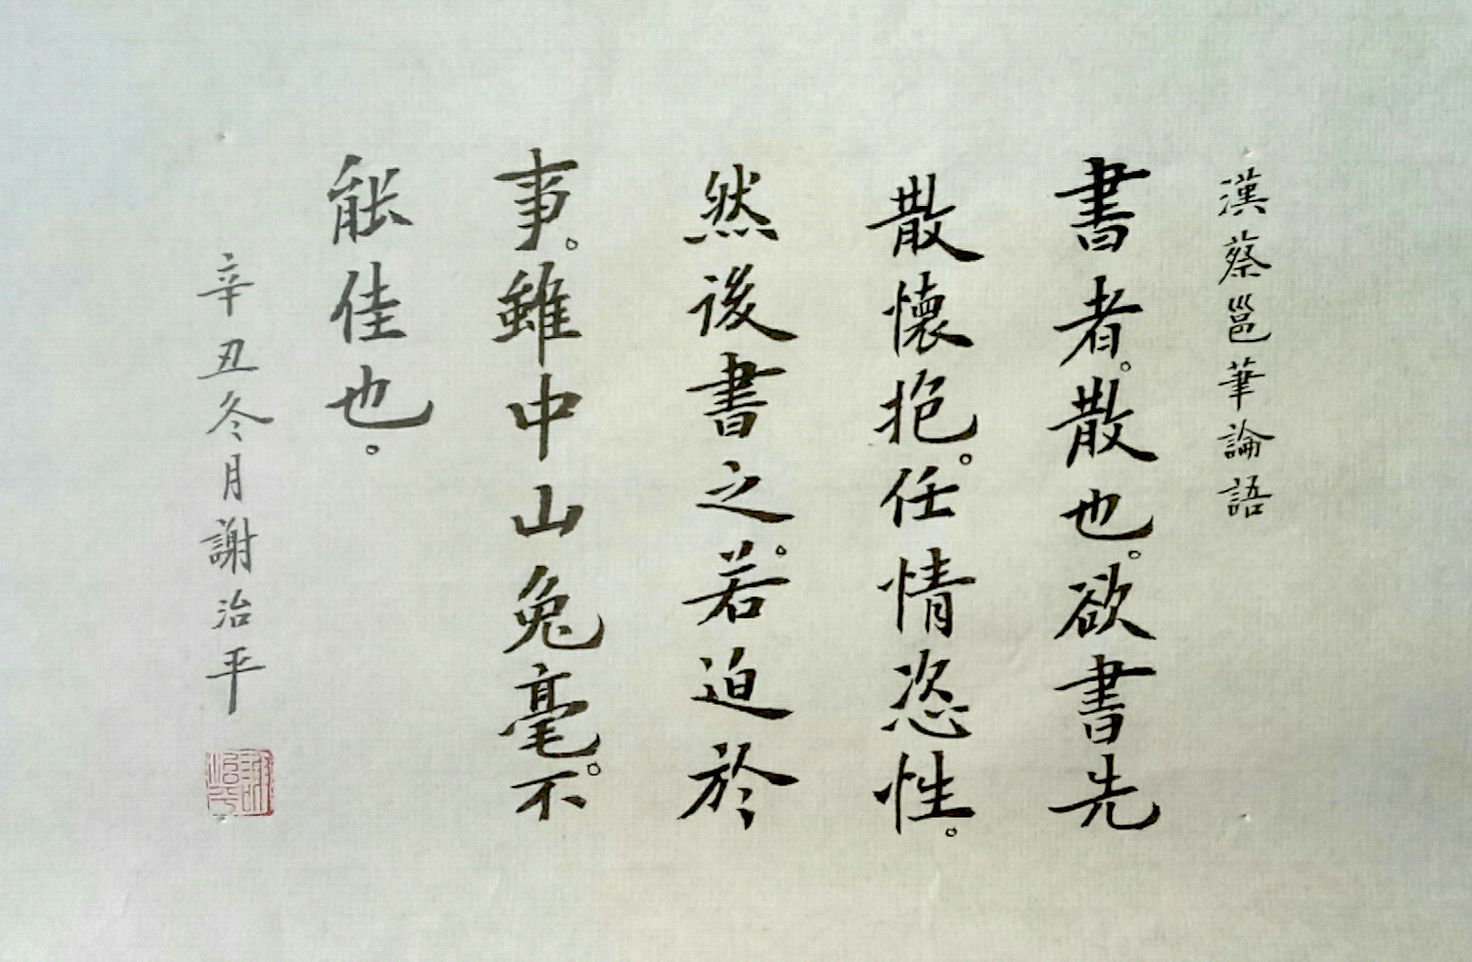 漢蔡邕華論語
書者。散也。欲書先
散懷抱。任情恣性。
然後書之。若迫於
事。雖中山兔毫。不
能佳也。
辛丑冬月謝治平